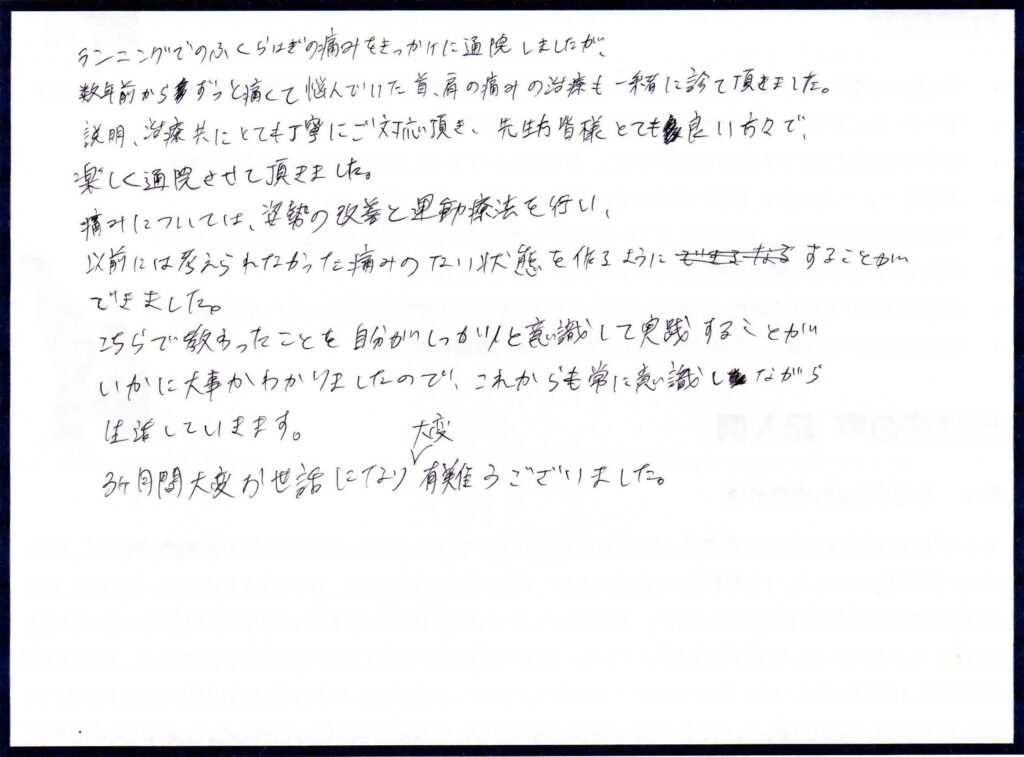 ランニングでのふくらはぎの痛みをきっかけに通院しましたが、
数年前からずっと痛くて悩んでいた首、肩の痛みの治療も一緒に診て頂きました。
説明、治療共にとても丁寧にご対応頂き、先生方皆様とても良い方々で、
楽しく通院させて頂きました。
痛みについては、姿勢の改善と運動療法を行い、
以前には考えられなかった痛みのない状態を作るようにすることが
できました。
こちらで教わったことを自分がしっかりと意識して実践することが
いかに大事かわかりましたので、これからも常に意識しながら
生活していきます。
3ヶ月間大変お世話になり大変有難うございました。